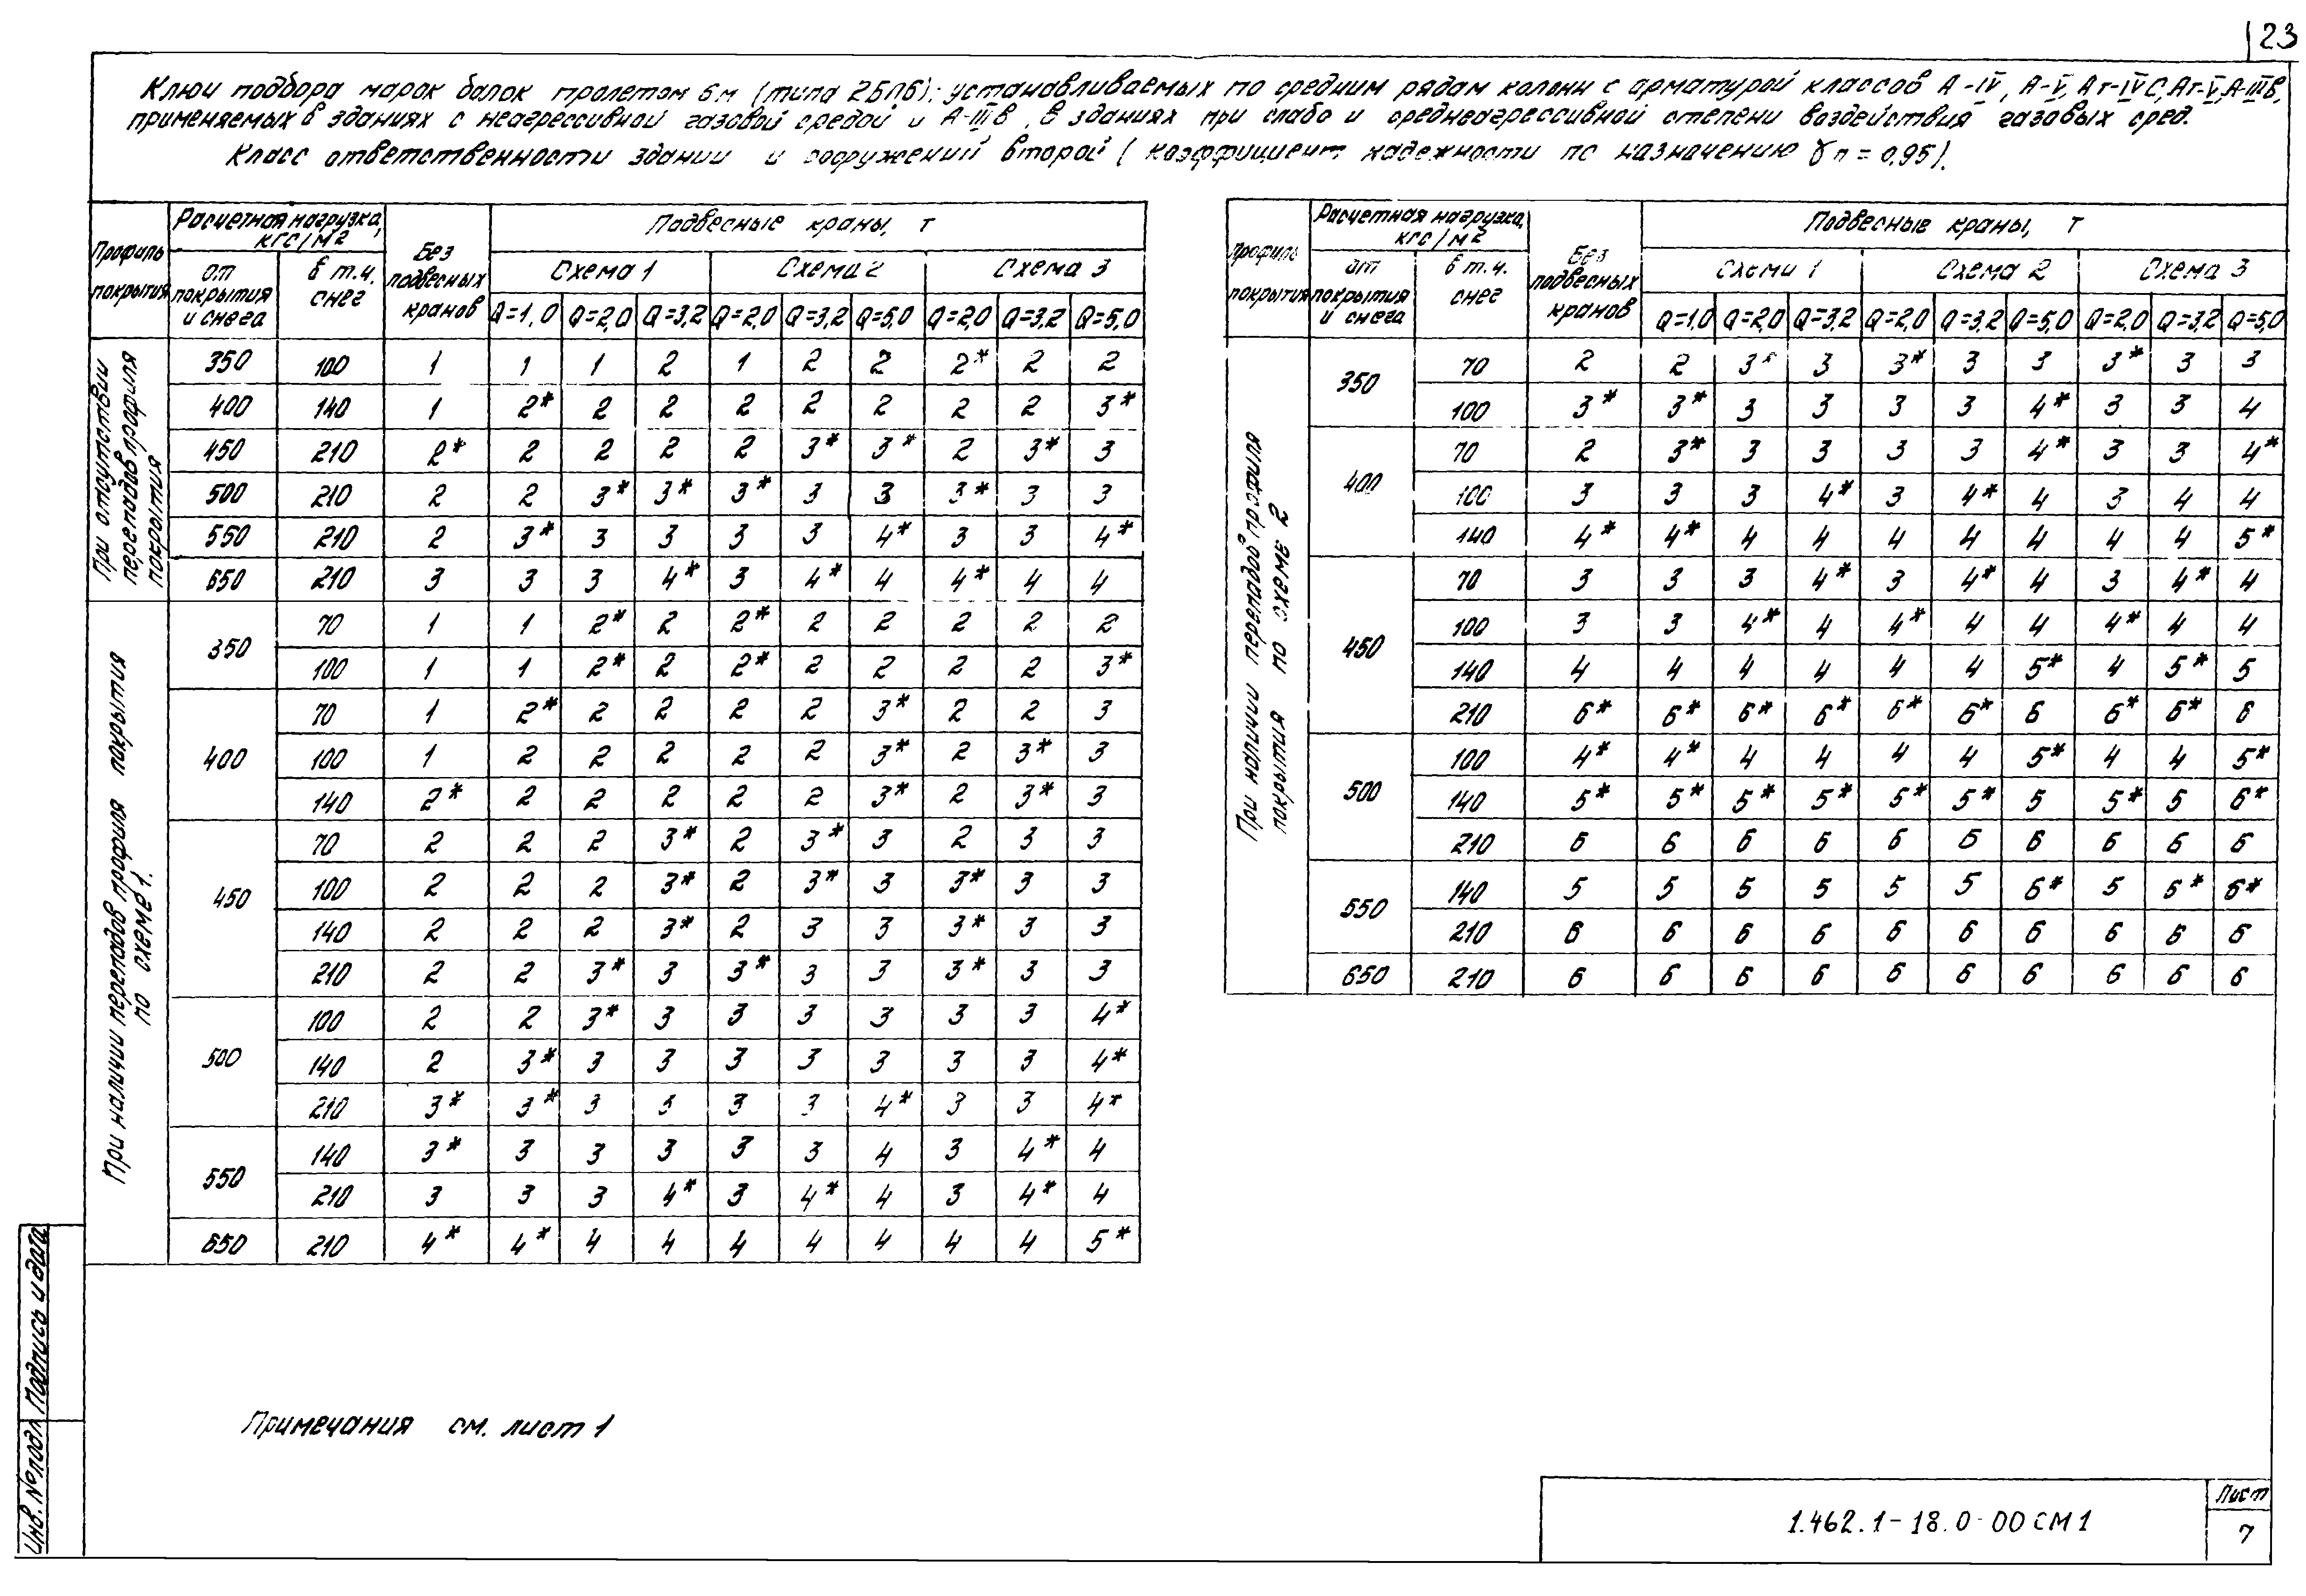 23
Ключ подбора марок балок пролетом 6м (типа 2БП6), устанавливаемых по средним рядам колонн с арматурой классов А-IV, А-V, Ат-IVС, Ат-V, А-IIIв,
применяемых в зданиях с неагрессивной газовой средой и А-IIIв, в зданиях при слабо и среднеагрессивной степени воздействия газовых сред.
Класс ответственности здании и сооружений второй (коэффициент надежности по назначению γn = 0,95).
Профиль покрытия | Расчетная нагрузка, кгс/м2 | Без подвесных кранов | Подвесные краны, т
от покрытия и снега | в т.ч. снег | Схема 1 | Схема 2 | Схема 3
Q=1,0 Q=2,0 Q=3,2 Q=2,0 Q=3,2 Q=5,0 Q=2,0 Q=3,2 Q=5,0
При отсутствии перепадов профиля покрытия
350 100 1 1 1 2 1 2 2 2* 2 2
400 140 1 2* 2 2 2 2 2 2 2 3*
450 210 2* 2 2 2 2 3* 3* 2 3* 3
500 210 2 2 3* 3* 3* 3 3 3* 3 3
550 210 2 3* 3 3 3 3 4* 3 3 4*
650 210 3 3 3 4* 3 4* 4 4* 4 4
При наличии перепадов профиля покрытия по схеме 1.
350 70 1 1 2* 2 2* 2 2 2 2 2
100 1 1 2* 2 2* 2 2 2 2 3*
400 70 1 2* 2 2 2 2 3* 2 2 3
100 1 2 2 2 2 2 3* 2 3* 3
140 2* 2 2 2 2 2 3* 2 3* 3
450 70 2 2 2 3* 2 3* 3 2 3 3
100 2 2 2 3* 2 3* 3 3* 3 3
140 2 2 2 3* 2 3 3 3* 3 3
210 2 2 3* 3 3* 3 3 3* 3 3
500 100 2 2 3* 3 3 3 3 3 3 4*
140 2 3* 3 3 3 3 3 3 3 4*
210 3* 3* 3 3 3 3 4* 3 3 4*
550 140 3* 3 3 3 3 3 4 3 4* 4
210 3 3 3 4* 3 4* 4 3 4* 4
650 210 4* 4* 4 4 4 4 4 4 4 5*
Профиль покрытия | Расчетная нагрузка, кгс/м2 | Без подвесных кранов | Подвесные краны, т
от покрытия и снега | в т.ч. снег | Схеми 1 | Схема 2 | Схема 3
Q=1,0 Q=2,0 Q=3,2 Q=2,0 Q=3,2 Q=5,0 Q=2,0 Q=3,2 Q=5,0
При наличии перепадов профиля покрытия по схеме 2
350 70 2 2 3* 3 3* 3 3 3* 3 3
100 3* 3* 3 3 3 3 4* 3 3 4
400 70 2 3* 3 3 3 3 4* 3 3 4*
100 3 3 3 4* 3 4* 4 3 4 4
140 4* 4* 4 4 4 4 4 4 4 5*
450 70 3 3 3 4* 3 4* 4 3 4* 4
100 3 3 4* 4 4* 4 4 4* 4 4
140 4 4 4 4 4 4 5* 4 5* 5
210 6* 6* 6* 6* 6* 6* 6 6* 6* 6
500 100 4* 4* 4 4 4 4 5* 4 4 5*
140 5* 5* 5* 5* 5* 5* 5 5* 5 6*
210 6 6 6 6 6 6 6 6 6 6
550 140 5 5 5 5 5 5 6* 5 6* 6*
210 6 6 6 6 6 6 6 6 6 6
650 210 6 6 6 6 6 6 6 6 6 6
Примечания см. лист 1
Инв. № подл. Подпись и дата
1.462.1-18.0-00СМ1
Лист
7